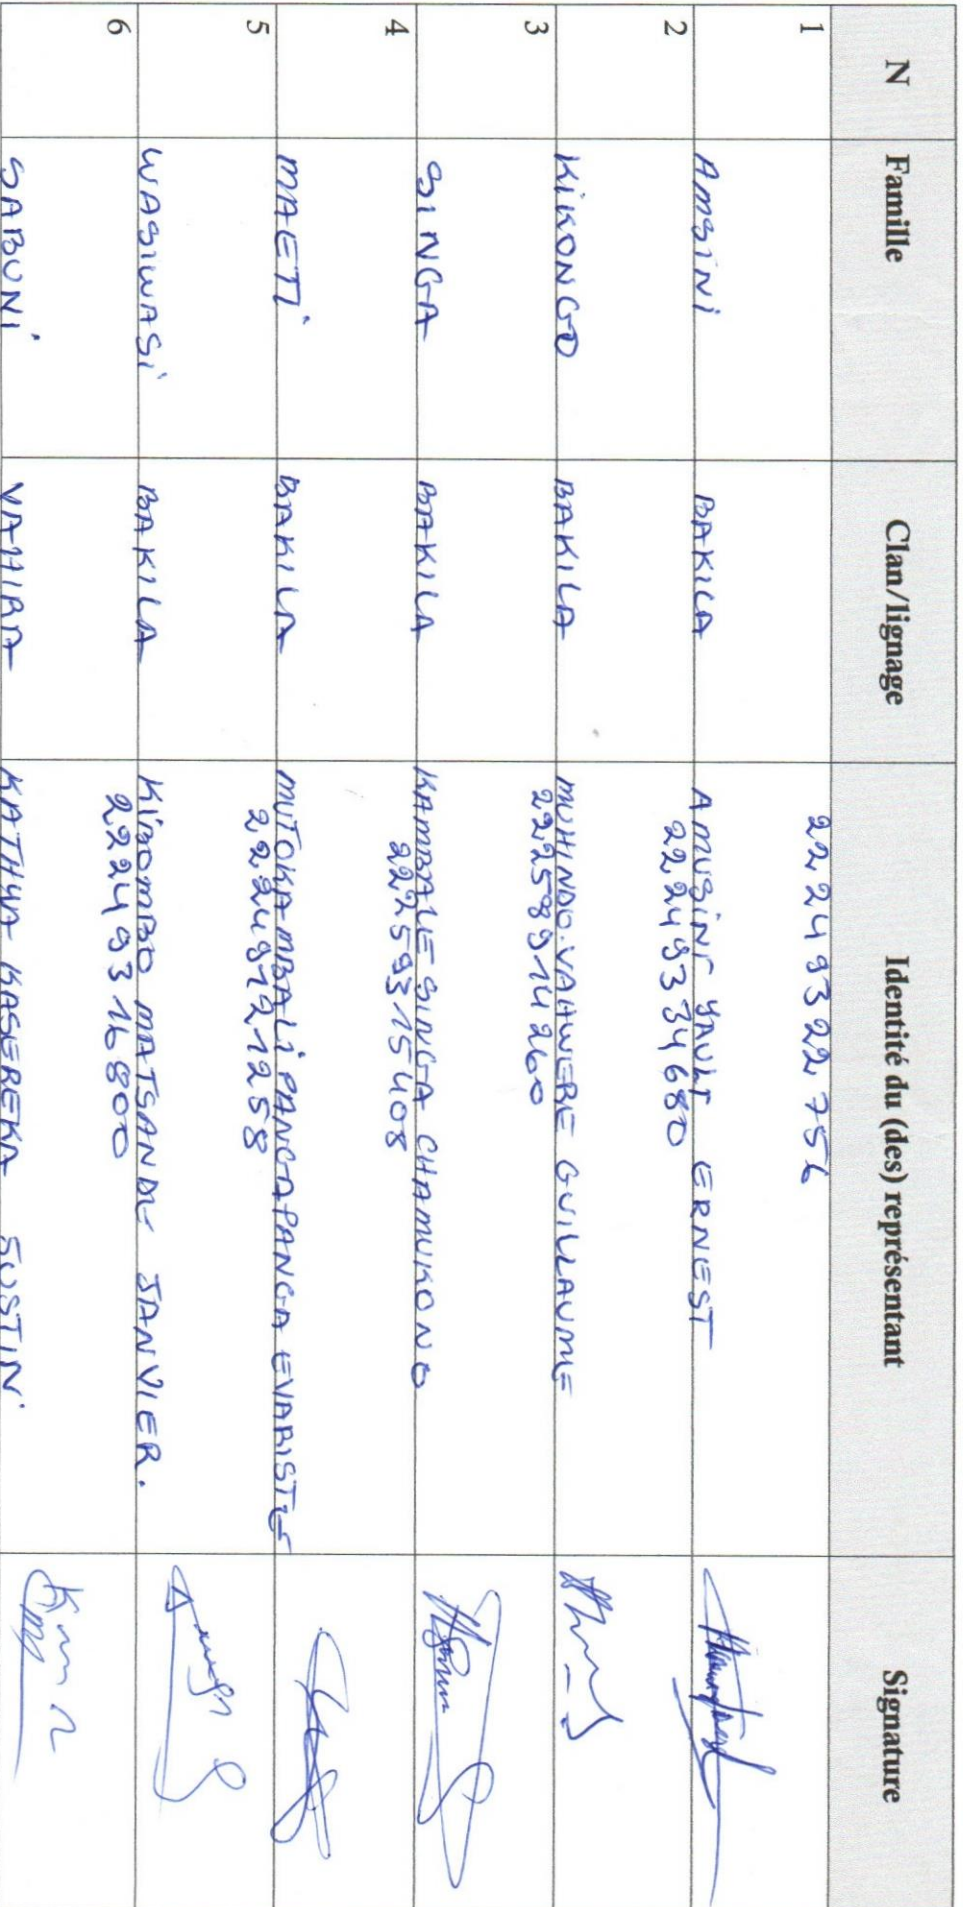 N Famille Clan/lignage Identité du (des) représentant Signature
1 22249322756
AMSINI BAKILA AMUSINI YAULI ERNEST
2 22249334680
KIKONGO BAKILA MUHINDO.VAHWERE GUILLAUME
3 22258914260
SINGA BAKILA KAMBALE SINGA CHAMUKONO
4 22259315408
MAETI BAKILA MUTOKAMBALI PANGAPANGA EVARISTE
5 22249121258
WASIWASI BAKILA KIBOMBO MATSANDE JANVIER.
6 22249316800
SABUNI VAHIRA KATHYA KASEREKA SOSTIN